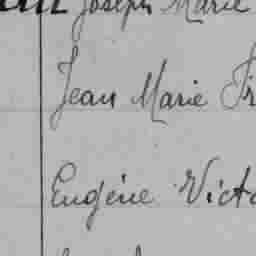 Joseph Marie
Jean Marie
Eugène Victo